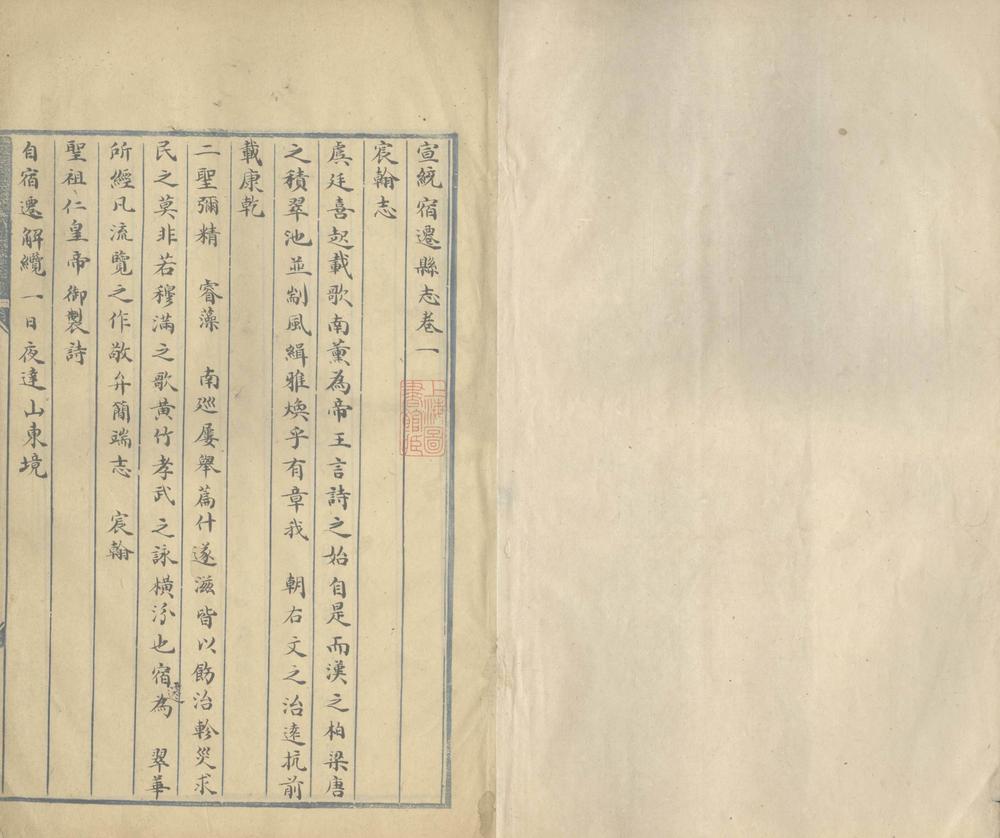 宣統宿遷縣志卷一
宸翰志
虞廷喜起載歌南薰為帝王言詩之始自是而漢之柏梁唐
之積翠池並剬風緝雅煥乎有章我　朝右文之治遠抗前
載康乾
二聖彌精　睿藻　南巡屢舉篇什遂滋皆以飭治軫災求
民之莫非若穆滿之歌黃竹孝武之詠橫汾也宿遷為　翠華
所經凡流覽之作敬弁簡端志　宸翰
聖祖仁皇帝御製詩
自宿遷解纜一日夜達山東境
上海圖
書館藏